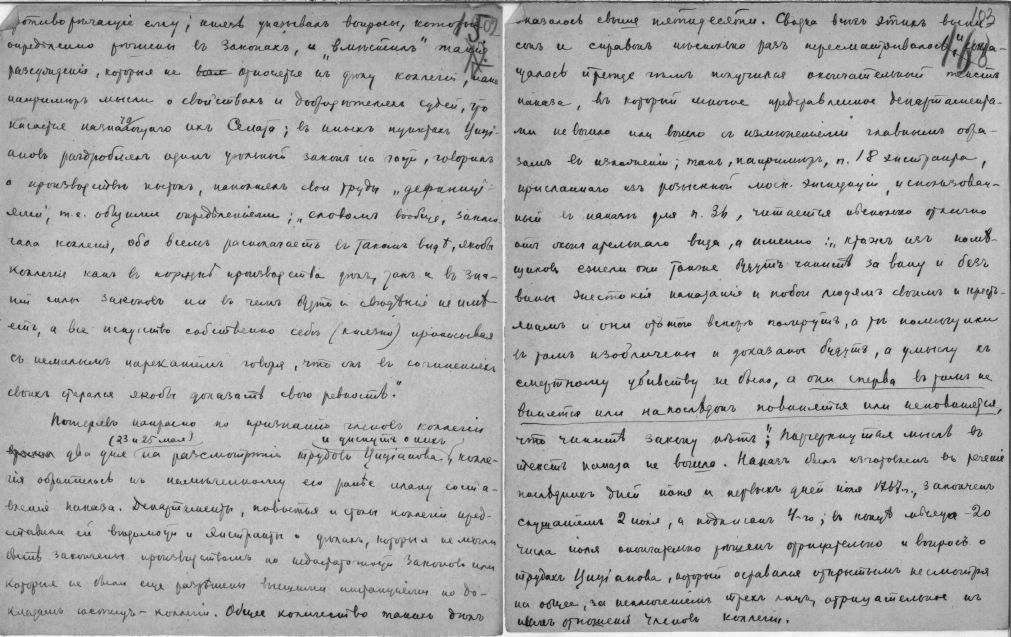 противоречащие ему; князь указывал вопросы, которые
определенно решены в законах, и "вместил" такие
разсуждения, которыя не относятся к делу коллегии, как
например мысли о свойствах и добродетелях судей, что
касается назначающаго их Сената; в иных пунктах Цици-
анов раздроблял один цельный закон на части, говорил
о производстве пыток, наполнял свои труды "дефиници-
ями", т.е. общими определениями; "словом вообще, заклю-
чала коллегия, обо всем располагает в таком виде, якобы
коллегия как в порядке производства дел, так и в зна-
нии силы законов ни в чем будто и сведения не име-
ет, а все искусство собственно себе (князю) приписывая
с немалым нареканием говоря, что он в сочинениях
своих старался якобы доказать свою ревность".
Потеряв напрасно по признанию членов коллегии
(23 и 25 мая) и диспут о них
два дня на разсмотрение трудов Цицианова, колле-
гия обратилась к намеченному ею ранее плану соста-
вления наказа. Департаменты, повытья и столы коллегии пред-
ставили ей ведомости и экстракты о делах, которыя не могли
быть закончены производством по недостатку законов или
которыя не были еще разрешены высшими инстанциями по до-
кладам юстиц-коллегии. Общее количество таких дел
103
оказалось свыше пятидесяти. Сводка всех этих выпи-
сок и справок несколько раз пересматривалась и сокра-
щалась и прежде чем получился окончательный текст
наказа, в который многое представленное департамента-
ми не вошло или вошло с изменениями главным обра-
зом в изложении; так, например, п. 18 экстракта,
присланнаго из розыскной моск. экспедиции, использован-
ный в наказе для п. 36, читается несколько отлично
от окончательнаго вида, а именно: "кражи из поме-
щиков если они также будут чинить за вину и без
вины жестокия наказания и побои людям своим и кресть-
янам и они от того вскоре помирут, а те помещики
в том изобличены и доказаны будут, а умыслу к
смертному убивству не было, а они сперва в том не
винятся или напоследок повинятся или неповинятся,
что чинить закону нет"; Подчеркнутая мысль в
текст наказа не вошла. Наказ был изготовлен в течение
последних дней июня и первых дней июля 1767 г., закончен
слушанием 2 июля, а подписан 4-го; в конце месяца - 20
числа июля окончательно решен отрицательно и вопрос о
трудах Цицианова, который оставался открытым несмотря
на общее, за исключением трех лиц, отрицательное к
ним отношение членов коллегии.